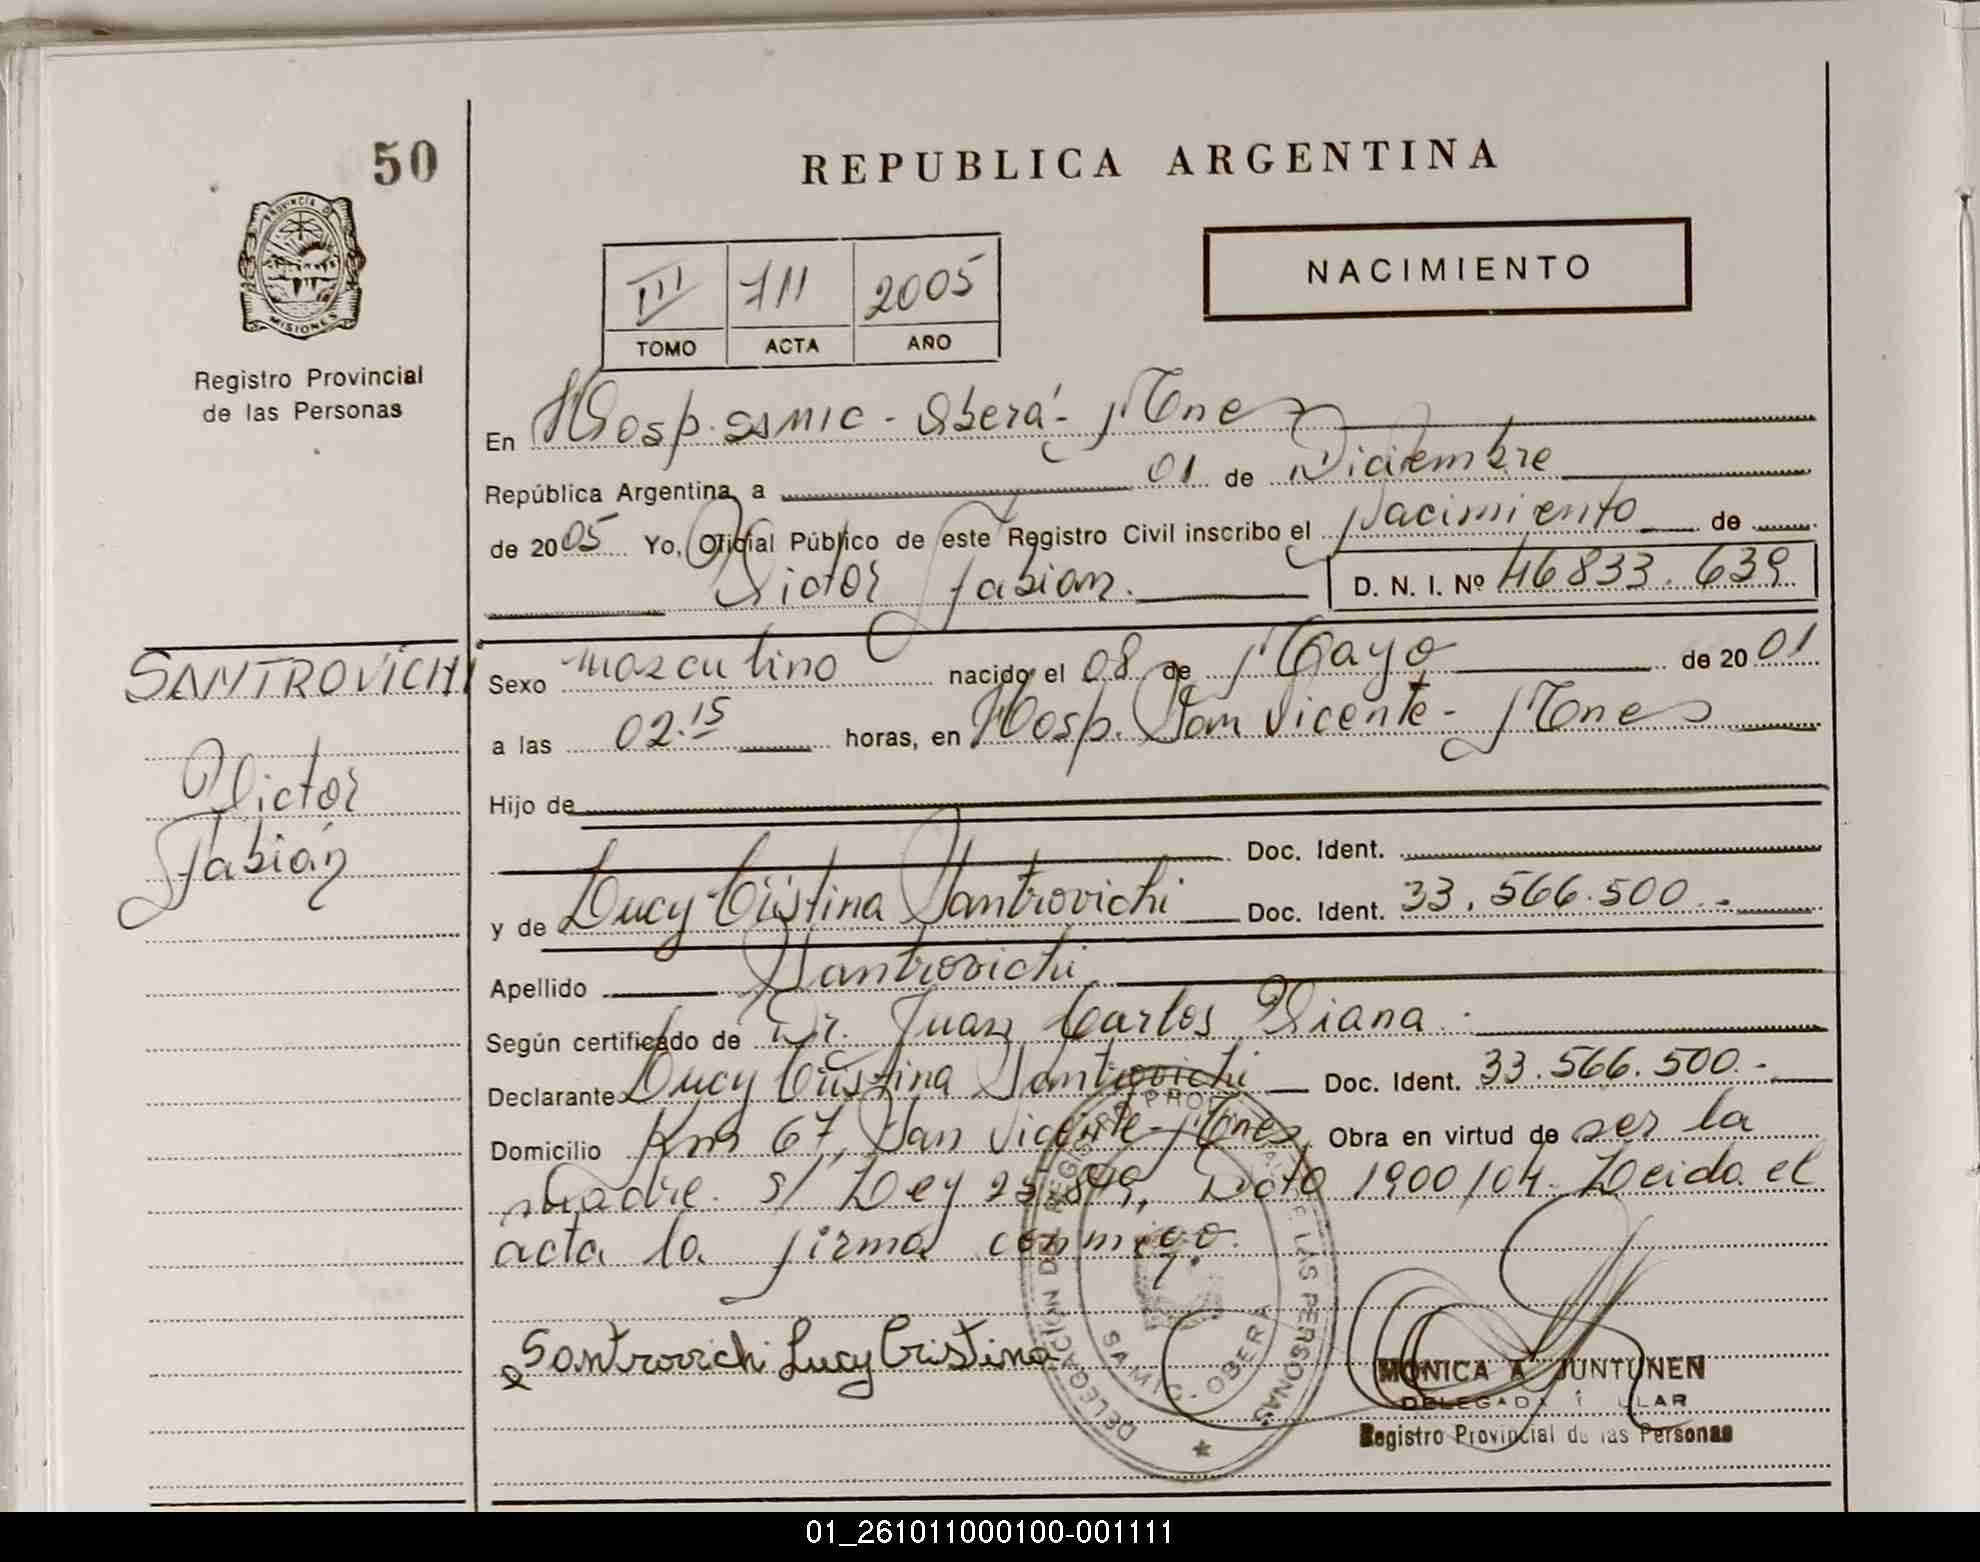 50
REPUBLICA ARGENTINA
PROVINCIA DE
MISIONES
Registro Provincial
de las Personas
NACIMIENTO
III 711 2005
TOMO ACTA AÑO
En Hosp. SAMIC - Oberá - Mnes
República Argentina, a 01 de Diciembre
de 2005 Yo, Oficial Público de este Registro Civil inscribo el Nacimiento de
Victor Fabian. D. N. I. Nº 46833.639
SANTROVICHI
Victor
Fabián
Sexo masculino nacido el 08 de Mayo de 2001
a las 02.15 horas, en Hosp. San Vicente - Mnes
Hijo de
Doc. Ident.
y de Lucy Cristina Santrovichi Doc. Ident. 33.566.500.-
Apellido Santrovichi
Según certificado de Dr. Juan Carlos Viana.
Declarante Lucy Cristina Santrovichi Doc. Ident. 33.566.500.-
Domicilio Km 67, San Vicente - Mnes, Obra en virtud de ser la
madre. s/ Ley 25.819, Dcto 1900/04. Leida el
acta la firma conmigo.
Santrovichi Lucy Cristina
DELEGACION DEL REGISTRO PROVINCIAL DE LAS PERSONAS
SAMIC - OBERA
MONICA A. JUNTUNEN
DELEGADA
Registro Provincial de las Personas
01_261011000100-001111